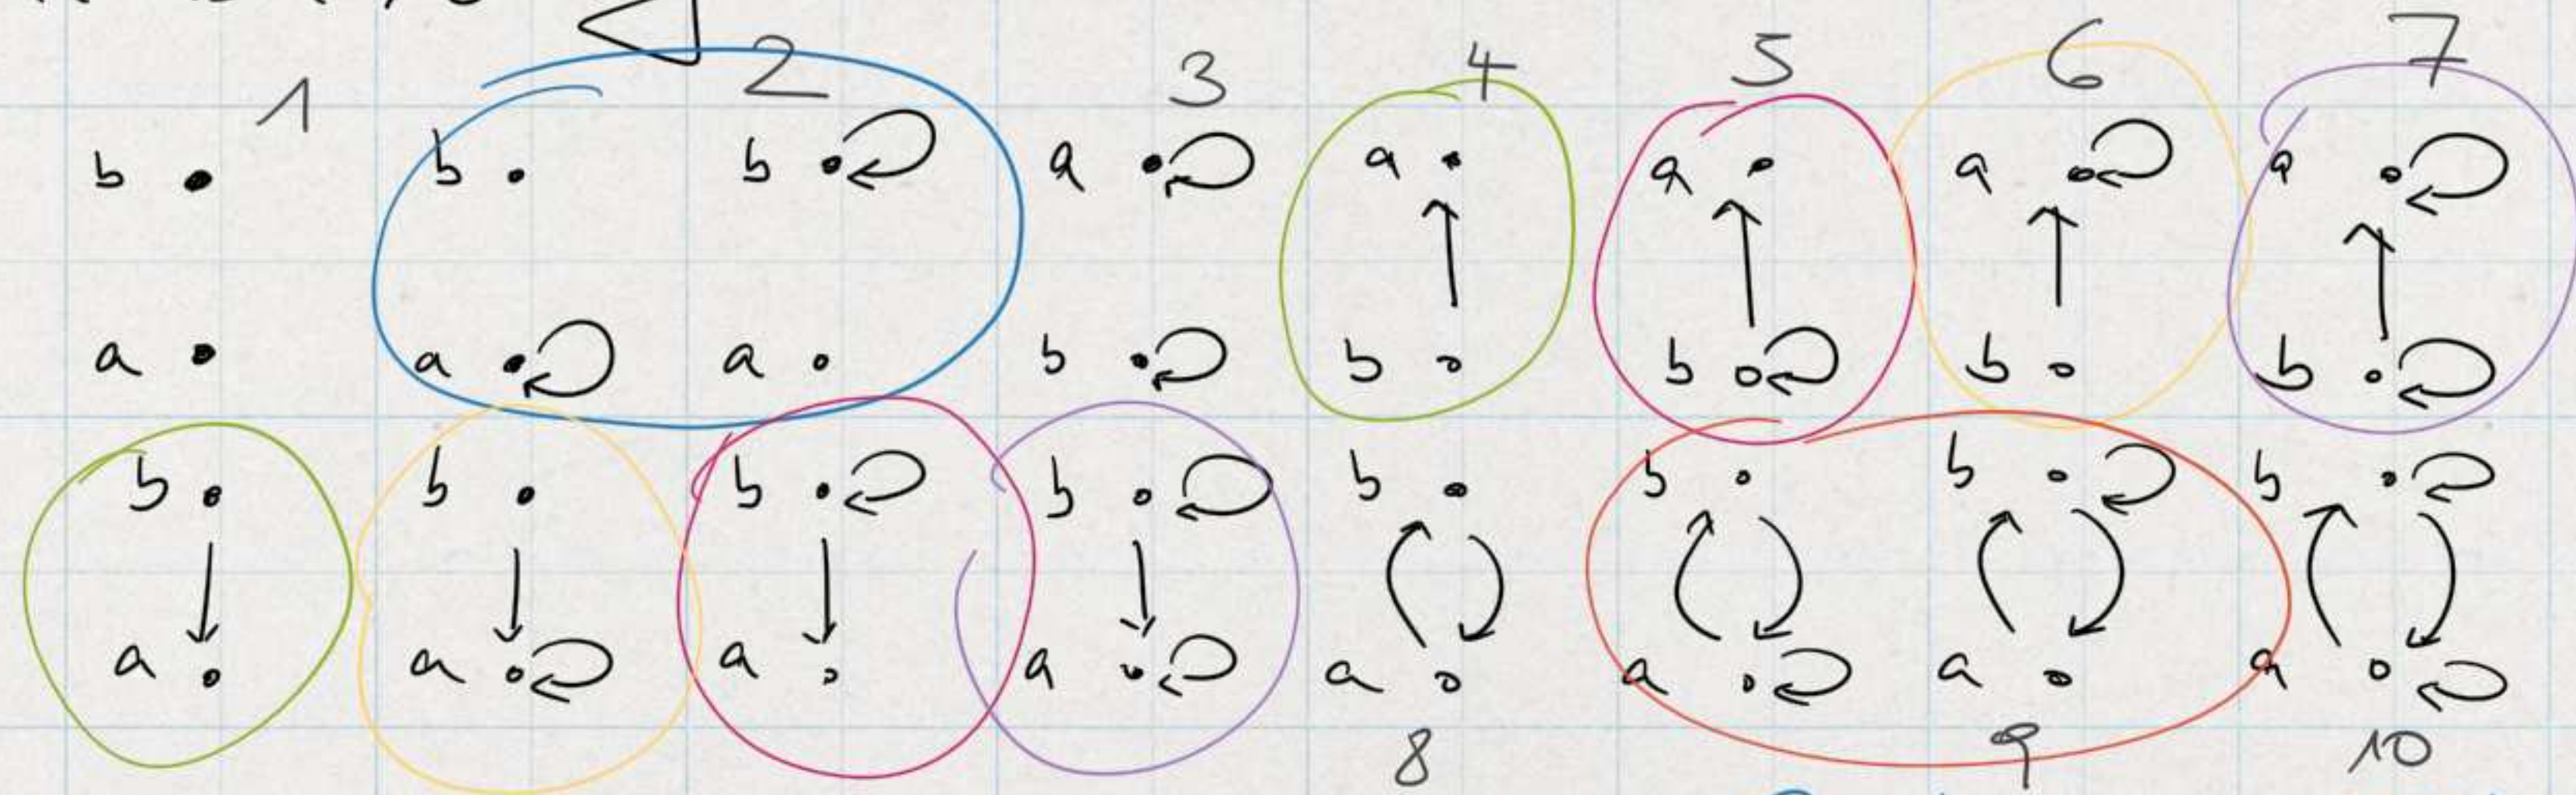 1 2 3 4 5 6 7
b b b a a a a a
a a a b b b b b
b b b b b b b b
a a a a a a a a
8 9 10